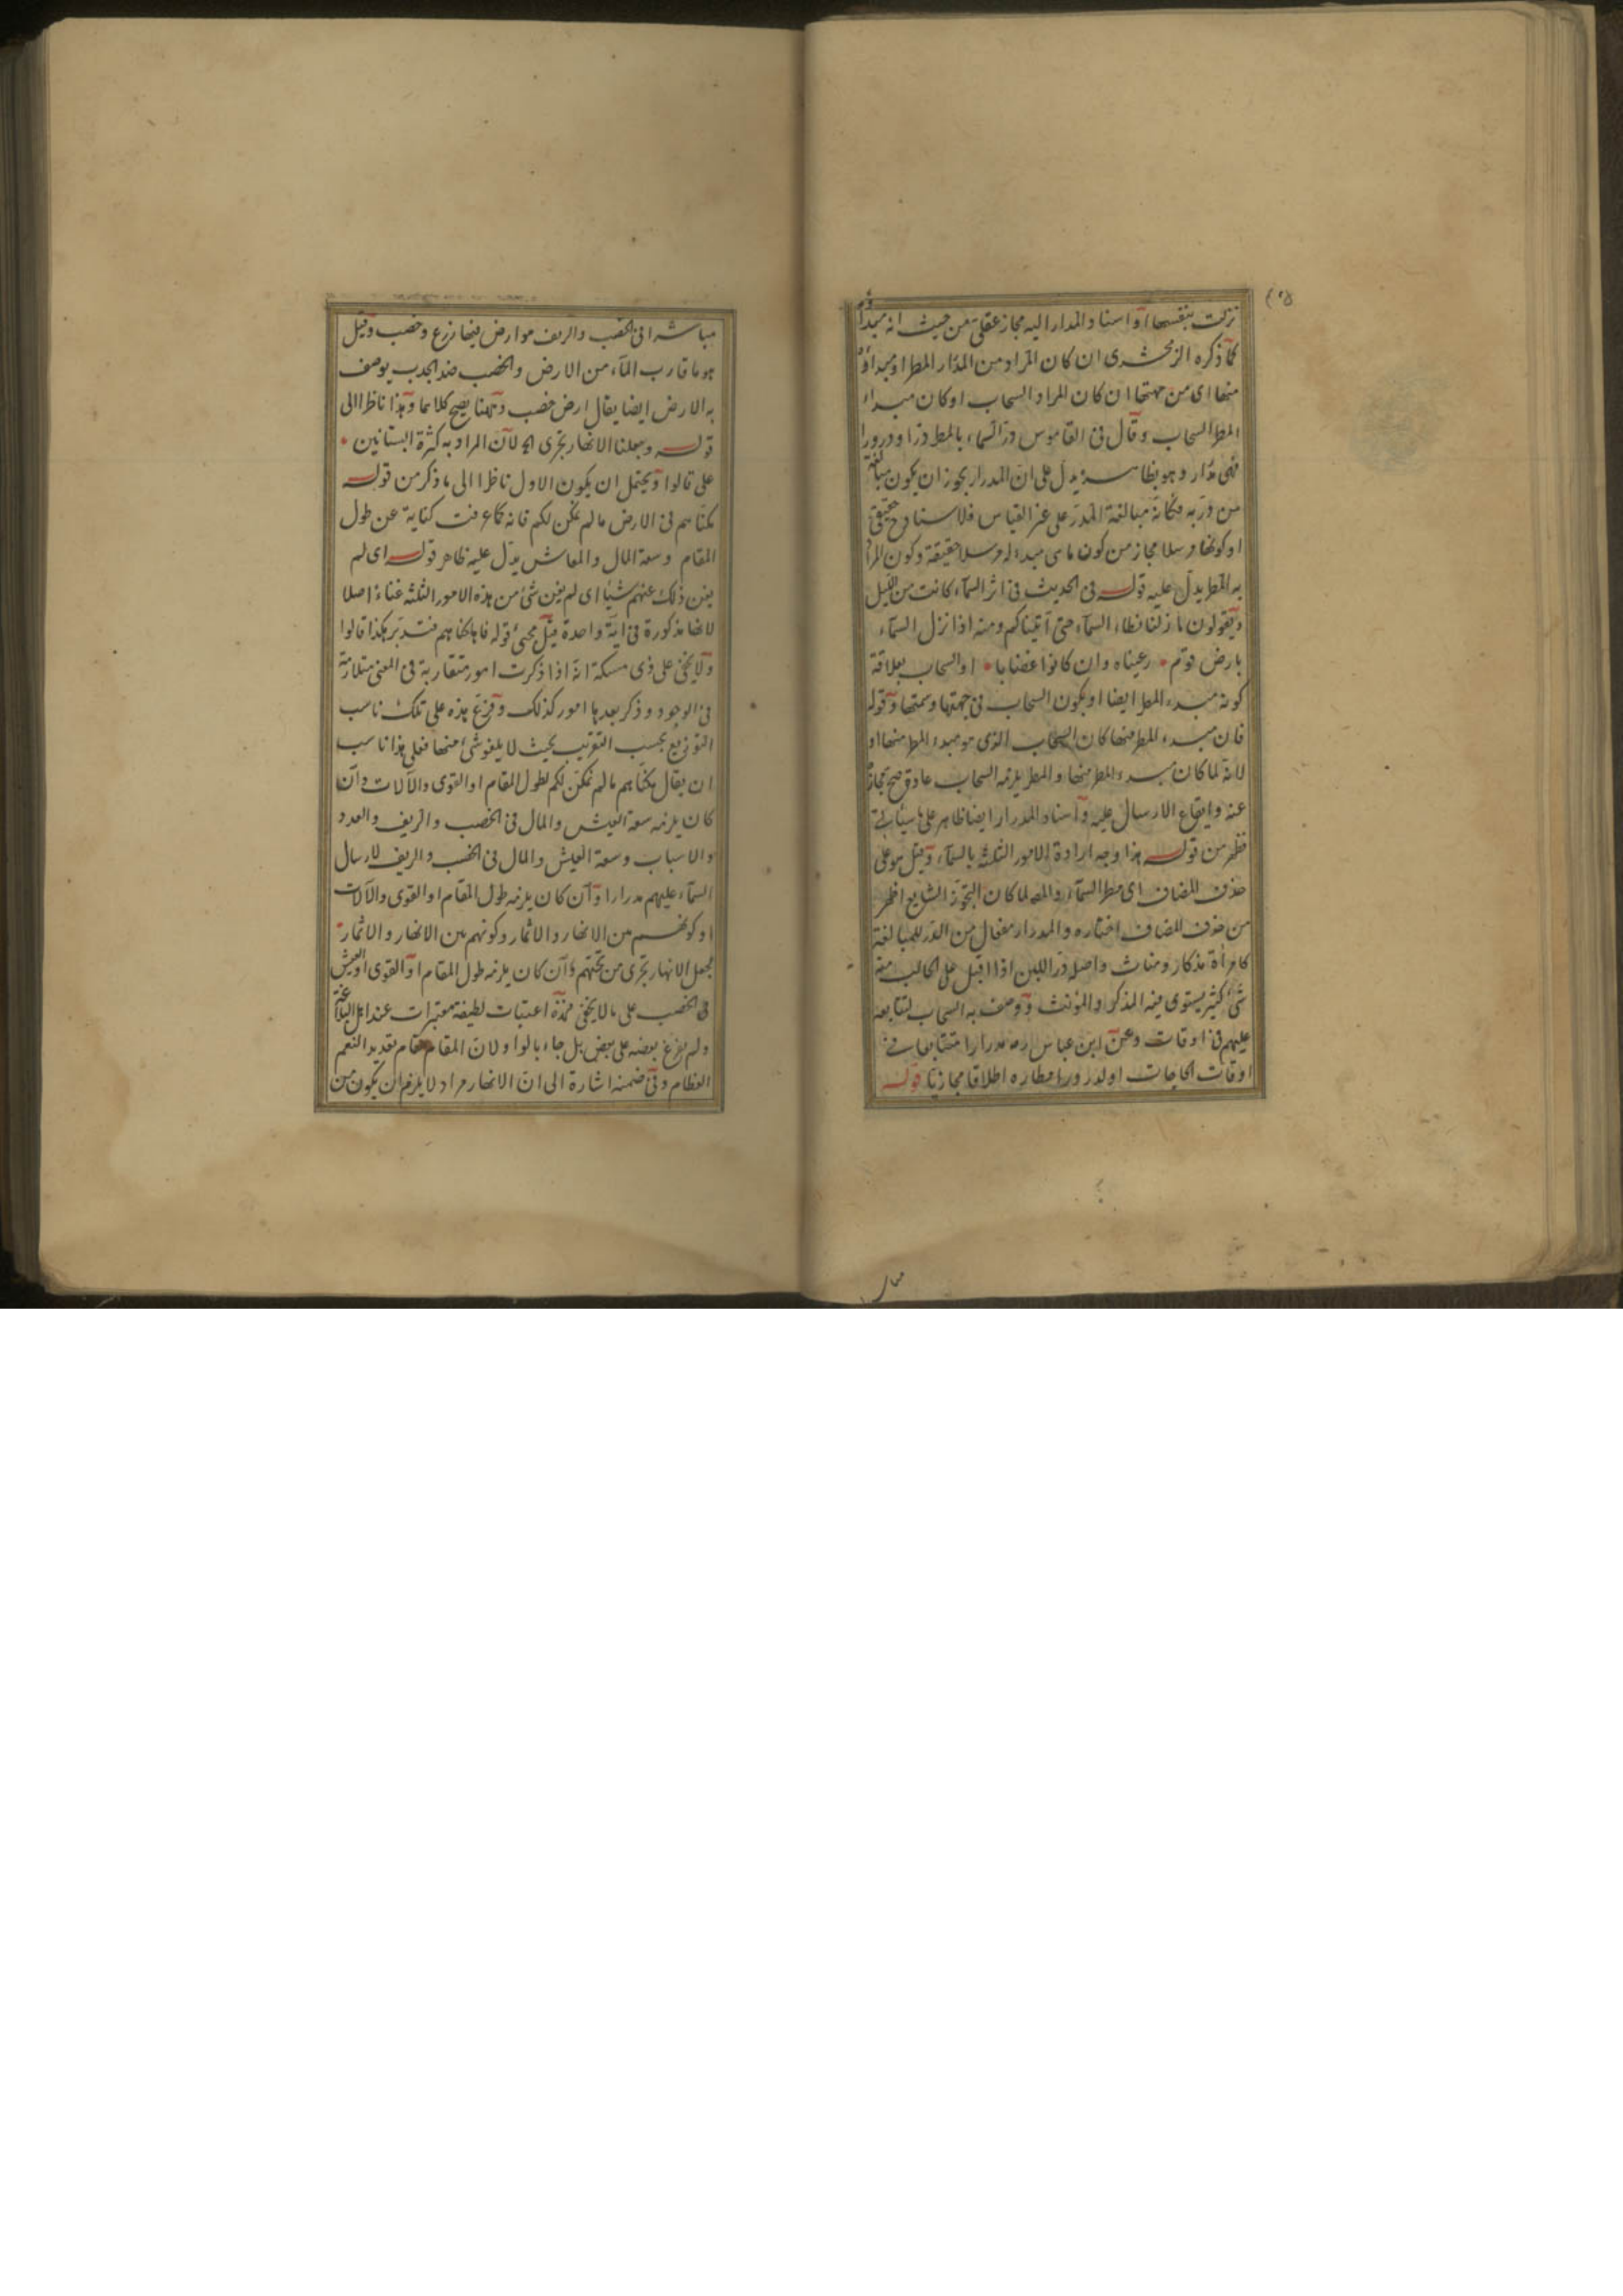 نزلت بنفسها او اسناد المدرار اليه مجاز عقلى من حيث انه مبدأ
كما ذكره الزمخشرى ان كان المراد من المدرار المطر او مبداؤه
منها اى من جهتها ان كان المراد السحاب او كان مبداء
المطر السحاب وقال فى القاموس در السماء بالمطر درا ودرورا
فهى مدرار وهو بظاهره يدل على ان المدرار يجوز ان يكون مبالغة
من در به فكانه مبالغة المدر على غير القياس فالاسناد ح حقيقى
او كونها مرسلا مجاز من كون ماهى مبدء له مرسلا حقيقة وكون المراد
به المطر يدل عليه قوله فى الحديث فى اثر السماء كانت من الليل
ويقولون مازلنا نطاء السماء حتى اتيناكم ومنه اذا نزل السماء
بارض قوم رعيناه وان كانوا غضابا او السحاب بعلاقة
كونه مبدء المطر ايضا او بكون السحاب فى جهتها وسمتها وقوله
فان مبدء المطر منها كان السحاب الذى هو مبدء المطر منها او
لانه لما كان مبدء المطر منها والمطر يلزمه السحاب عادة صح مجازه
عنه وايقاع الارسال عليه واسناد المدرار ايضا ظاهر على ما سيأتى
فظهر من قوله هذا وجه ارادة الامور الثلثة بالسماء وقيل هو على
حذف المضاف اى مطر السماء والمص لما كان التجوز الشايع اظهر
من حذف المضاف اختاره والمدرار مفعال من الدر للمبالغة
كامرأة مذكار ومئناث واصله در اللبن اذا اقبل على الحالب منه
شئ كثير يستوى فيه المذكر والمؤنث ووصف به السحاب لتتابعه
عليهم فى اوقات وعن ابن عباس رض مدرارا متتابعا فى
اوقات الحاجات او لدرور امطاره اطلاقا مجازيا قوله
مباشرا فى الخصب والريف هو ارض فيها زرع وخصب وقيل
هو ما قارب الماء من الارض والخصب ضد الجدب يوصف
به الارض ايضا يقال ارض خصب وههنا يصح كلاهما وهذا ناظر الى
قوله وجعلنا الانهار تجرى الخ لان المراد به كثرة البساتين
على قالوا ويحتمل ان يكون الاول ناظرا الى ما ذكر من قوله
مكناهم فى الارض مالم نمكن لكم فانه كما عرفت كناية عن طول
المقام وسعة المال والمعاش يدل عليه ظاهر قوله اى لم
يغن ذلك عنهم شيئا اى لم يغن شئ من هذه الامور الثلثة غناء اصلا
لانها مذكورة فى اية واحدة قبل مجئ قوله فاهلكناهم فتدبر هكذا قالوا
ولا يخفى على ذى مسكة انه اذا ذكرت امور متقاربة فى المعنى متلازمة
فى الوجود وذكر بعدها امور كذلك وفرع هذه على تلك ناسب
التوزيع بحسب الترتيب بحيث لا يلغو شئ منها فعلى هذا ناسب
ان يقال مكناهم مالم نمكن لكم لطول المقام او القوى والآلات وان
كان يلزمه سعة العيش والمال فى الخصب والريف والعدد
والاسباب وسعة العيش والمال فى الخصب والريف لارسال
السماء عليهم مدرارا وان كان يلزمه طول المقام او القوى والآلات
او كونهم من الانهار والاثمار وكونهم بين الانهار والاثمار
لجعل الانهار تجرى من تحتهم وان كان يلزمه طول المقام او القوى او العيش
فى الخصب على ما لا يخفى فهذه اعتبارات لطيفة معتبرات عند اهل البلاغة
ولم يفرع بعضه على بعض بل جاء بالواو لان المقام مقام تعديد النعم
العظام وفى ضمنه اشارة الى ان الانهار مراد لا يلزم ان يكون من